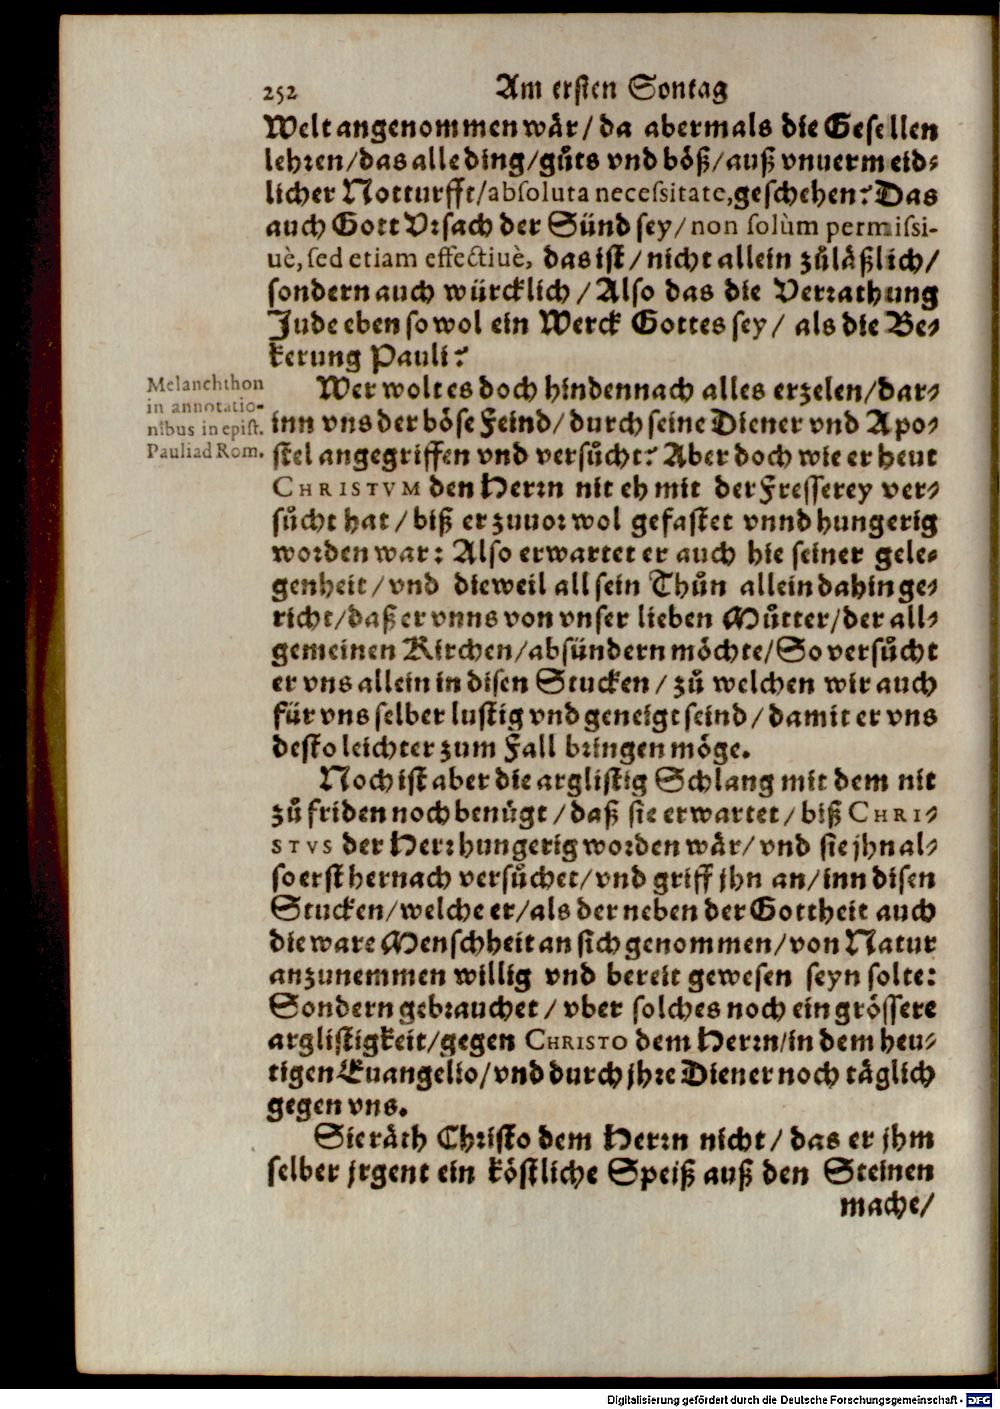 252 Am ersten Sontag
Welt angenommen wär / da abermals die Gesellen
lehren / das alle ding / gůts vnd böß / auß vnuermeid⸗
licher Notturfft / absoluta necessitate, geschehen? Das
auch Gott Vrsach der Sünd sey / non solùm permissi-
uè, sed etiam effectiuè, das ist / nicht allein zůläßlich /
sondern auch würcklich / Also das die Verrathung
Jude eben so wol ein Werck Gottes sey / als die Be⸗
kerung Pauli?
Melanchthon
in annotatio-
nibus in epist.
Pauli ad Rom.
Wer wolt es doch hindennach alles erzelen / dar⸗
inn vns der böse Feind / durch seine Diener vnd Apo⸗
stel angegriffen vnd versůcht? Aber doch wie er heut
CHRISTVM den Herrn nit eh mit der Fresserey ver⸗
sůcht hat / biß er zuuor wol gefastet vnnd hungerig
worden war: Also erwartet er auch hie seiner gele⸗
genheit / vnd dieweil all sein Thůn allein dahin ge⸗
richt / daß er vnns von vnser lieben Můtter / der all⸗
gemeinen Kirchen / absündern möchte / So versůcht
er vns allein in disen Stucken / zů welchen wir auch
für vns selber lustig vnd geneigt seind / damit er vns
desto leichter zum Fall bringen möge.
Noch ist aber die arglistig Schlang mit dem nit
zů friden noch benügt / daß sie erwartet / biß CHRI⸗
STVS der Herr hungerig worden wär / vnd sie jhn al⸗
so erst hernach versůchet / vnd griff jhn an / inn disen
Stucken / welche er / als der neben der Gottheit auch
die ware Menschheit an sich genommen / von Natur
anzunemmen willig vnd bereit gewesen seyn solte:
Sondern gebrauchet / vber solches noch ein grössere
arglistigkeit / gegen CHRISTO dem Herrn / in dem heu⸗
tigen Euangelio / vnd durch jhre Diener noch täglich
gegen vns.
Sie räth Christo dem Herrn nicht / das er jhm
selber jrgent ein köstliche Speiß auß den Steinen
mache /
Digitalisierung gefördert durch die Deutsche Forschungsgemeinschaft - DFG